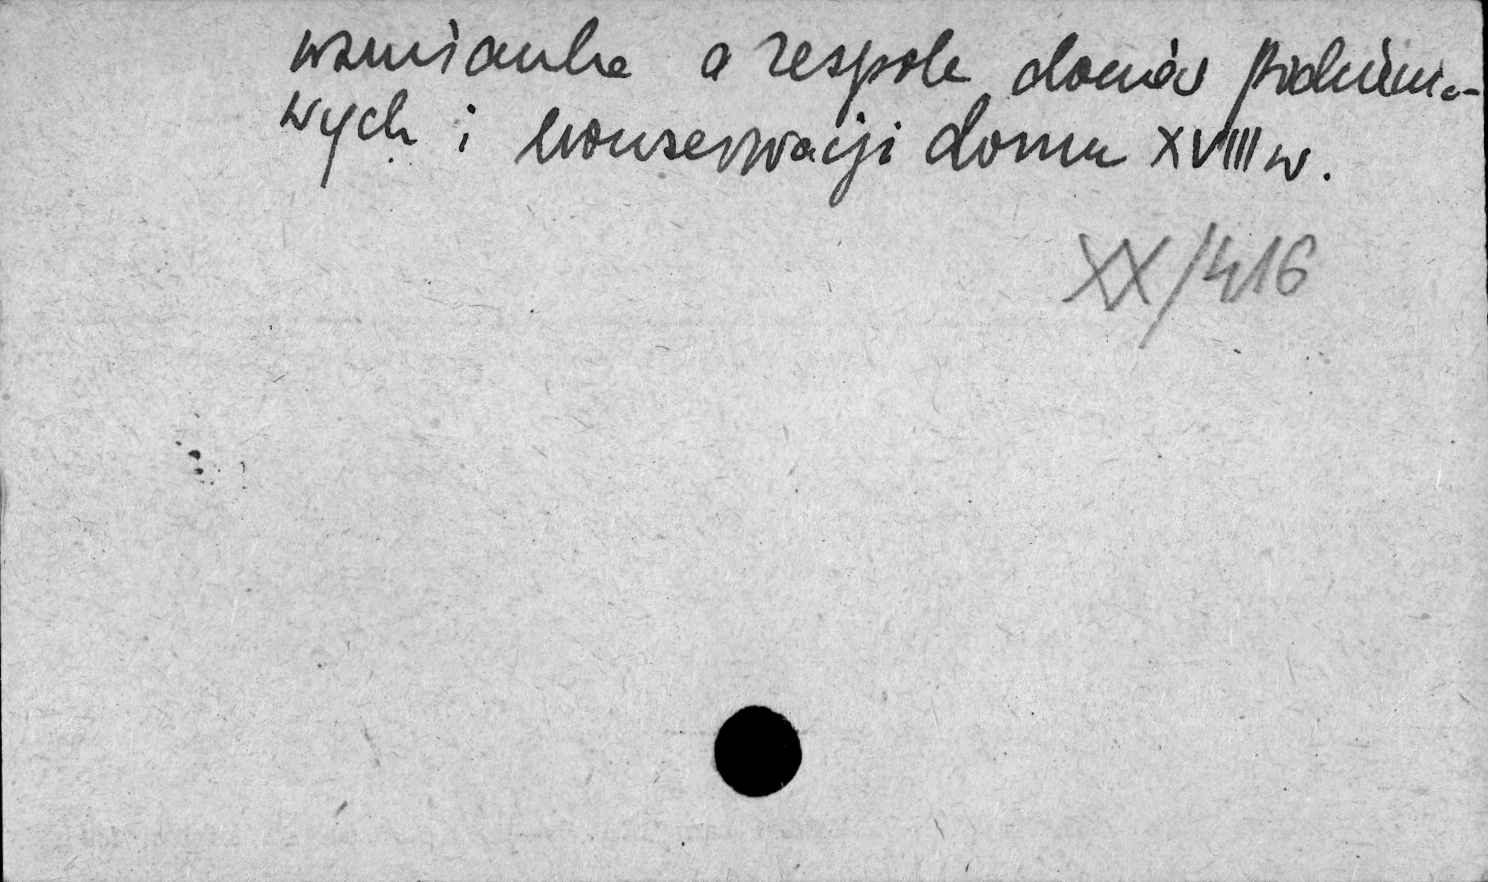 wzmianka o zespole domów podcienio-
wych i konserwacji domu XVIII w.
XX/416